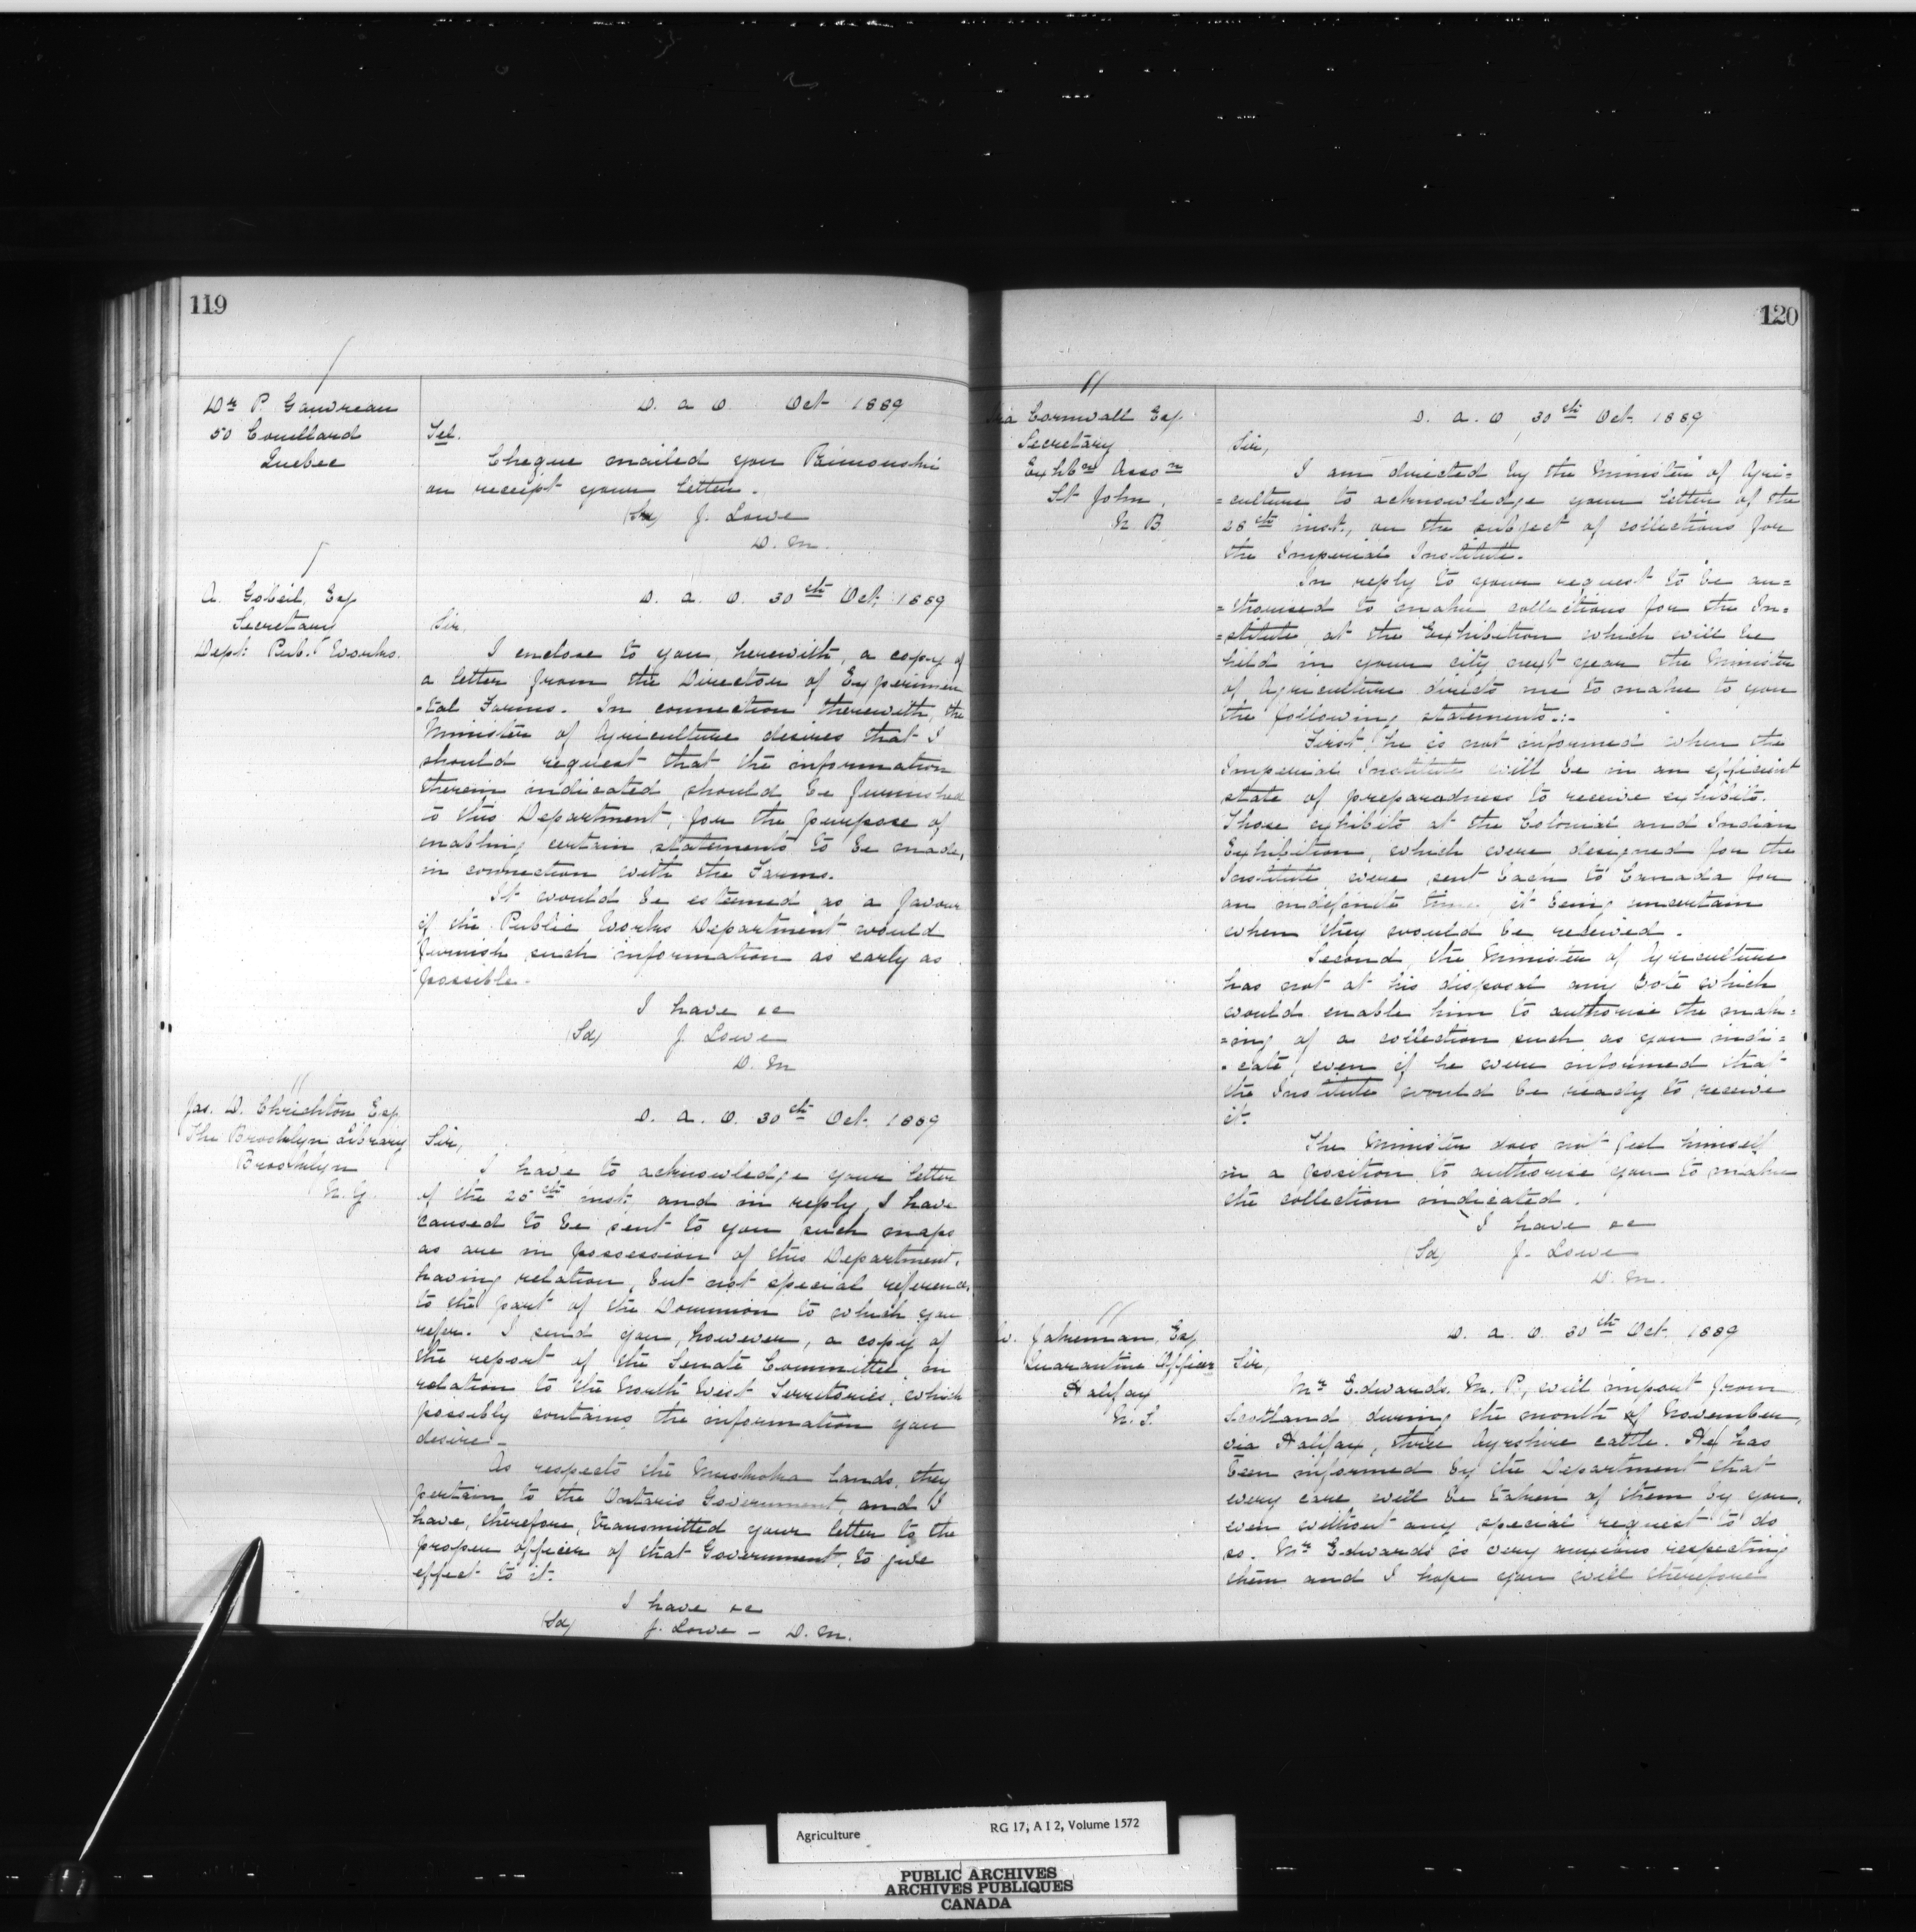 119
Dr P. Gauvreau
50 Couillard
Quebec
D. a O Oct 1889
Tel.
Cheque mailed you Rimouski
on receipt your letter.
(Sd) J. Lowe
D. M.
A. Gobeil, Esq
Secretary
Dept. Pub. Works.
D. a. O. 30th Oct, 1889
Sir,
I enclose to you, herewith, a copy of
a letter from the Director of Experimen
-tal Farms. In connection therewith, the
Minister of Agriculture desires that I
should request that the information
therein indicated should be furnished
to this Department, for the purpose of
enabling certain statements to be made,
in connection with the Farms.
It would be esteemed as a favour
if the Public Works Department would
furnish such information as early as
possible.
I have &c
(Sd) J. Lowe
D. M
Jas. D. Chrichton Esq.
The Brooklyn Library
Brooklyn
N.Y.
D. a. O. 30th Oct. 1889
Sir,
I have to acknowledge your letter
of the 25th inst, and in reply, I have
caused to be sent to you such maps
as are in possession of this Department,
having relation, but not special reference,
to the part of the Dominion to which you
refer. I send you, however, a copy of
the report of the Senate Committee, in
relation to the North West Territories, which
possibly contains the information you
desire-
As respects the Muskoka lands, they
pertain to the Ontario Government and I
have, therefore, transmitted your letter to the
proper officer of that Government, to give
effect to it.
I have &c
(Sd) J. Lowe - D. M.
120
Ira Cornwall Esq
Secretary
Exhbn Asson
St John,
N. B.
D. a. O, 30th Oct. 1889
Sir,
I am directed by the Minister of Agri=
=culture to acknowledge your letter of the
28th inst., on the subject of collections for
the Imperial Institute.
In reply to your request to be au=
=thorised to make collections for the In=
=stitute, at the Exhibition which will be
held in your city next year the Minister
of Agriculture directs me to make to you
the following statements.:-
First, he is not informed when the
Imperial Institute will be in an efficient
state of preparedness to receive exhibits.
Those exhibits at the Colonial and Indian
Exhibition, which were designed for the
Institute, were sent back to Canada for
an indefinite time, it being uncertain
when they would be received.
Second, the Minister of Agriculture
has not at his disposal any Vote which
would enable him to authorise the mak=
=ing of a collection such as you indi=
-cate, even if he were informed that
the Institute would be ready to receive
it.
The Minister does not feel himself
in a position to authorise you to make
the collection indicated.
I have &c
(Sd) J. Lowe
D. M.
Jakeman, Esq
Quarantine Officer
Halifax
N. S.
D. a. O. 30th Oct. 1889
Sir,
Mr Edwards. M. P., will import from
Scotland during the month of November,
via Halifax, three Ayrshire cattle. He has
been informed by the Department that
every care will be taken of them by you,
even without any special request to do
so. Mr Edwards is very anxious respecting
them and I hope you will therefore
Agriculture RG 17, A I 2, Volume 1572
PUBLIC ARCHIVES
ARCHIVES PUBLIQUES
CANADA